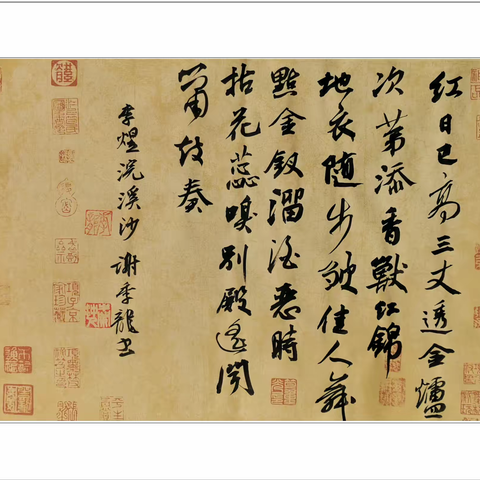 红日已高三丈透金爐
次第添香獸红錦
地衣随步皱佳人舞
點金釵溜酒恶時
拈花蕊嗅别殿遥闻
箫鼓奏
李煜浣溪沙 谢季龙书